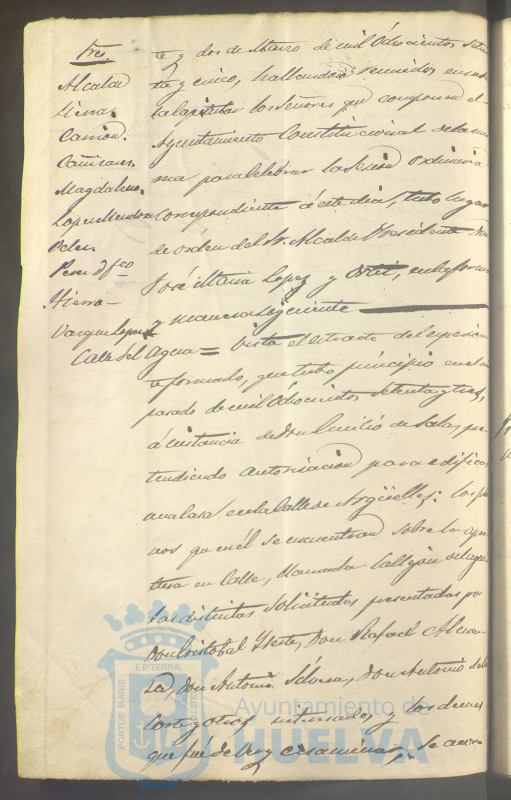 Sres.
Alcalde
Sierra.
Carrion.
Cañizares
Magdaleno.
Lopez Mendoza
Peres dfco
Hierro
Vazquez Lopez
Calle del Agua =
te y dos de Marzo de mil ochocientos seten
ta y cinco, hallandose reunidos en esta
Sala Capitular los Señores que componen el
Ayuntamiento Constitucional de la mis
ma para celebrar la Sesion ordinaria
correspondiente á este dia, tubo lugar
de orden del Sr. Alcalde Presidente Don
José Maria Lopez y Ortiz, en la forma
y manera siguiente
Visto el estado del espedien
te formado, que tubo principio en el año
pasado de mil ochocientos setenta y tres,
á instancia de Don Emilio de Salas, pre
tendiendo autorizacion para edificar
una casa en la Calle de Argüelles: los pla
nos que en él se encuentran sobre la aper
tura en Calle, llamada Callejon del Agua
las distintas solicitudes presentadas por
Don Cristobal Yeste, Don Rafael
Don Antonio Silvera, Don Antonio de la
Corte y otros interesados y los demas
que fué de ver y ecsaminar, se acor
PORTUS MARIS
ET TERRÆ
Ayuntamiento de
HUELVA